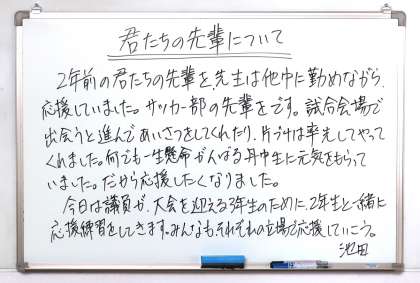 君たちの先輩について
2年前の君たちの先輩を、先生は他中に勤めながら、
応援していました。サッカー部の先輩をです。試合会場で
出会うと進んであいさつをしてくれたり、片づけは率先してやって
くれました。何でも一生懸命がんばる丹中生に元気をもらって
いました。だから応援したくなりました。
今日は議員が、大会を迎える3年生のために、2年生と一緒に
応援練習をしてきます。みんなもそれぞれの立場で応援していこう。
池田